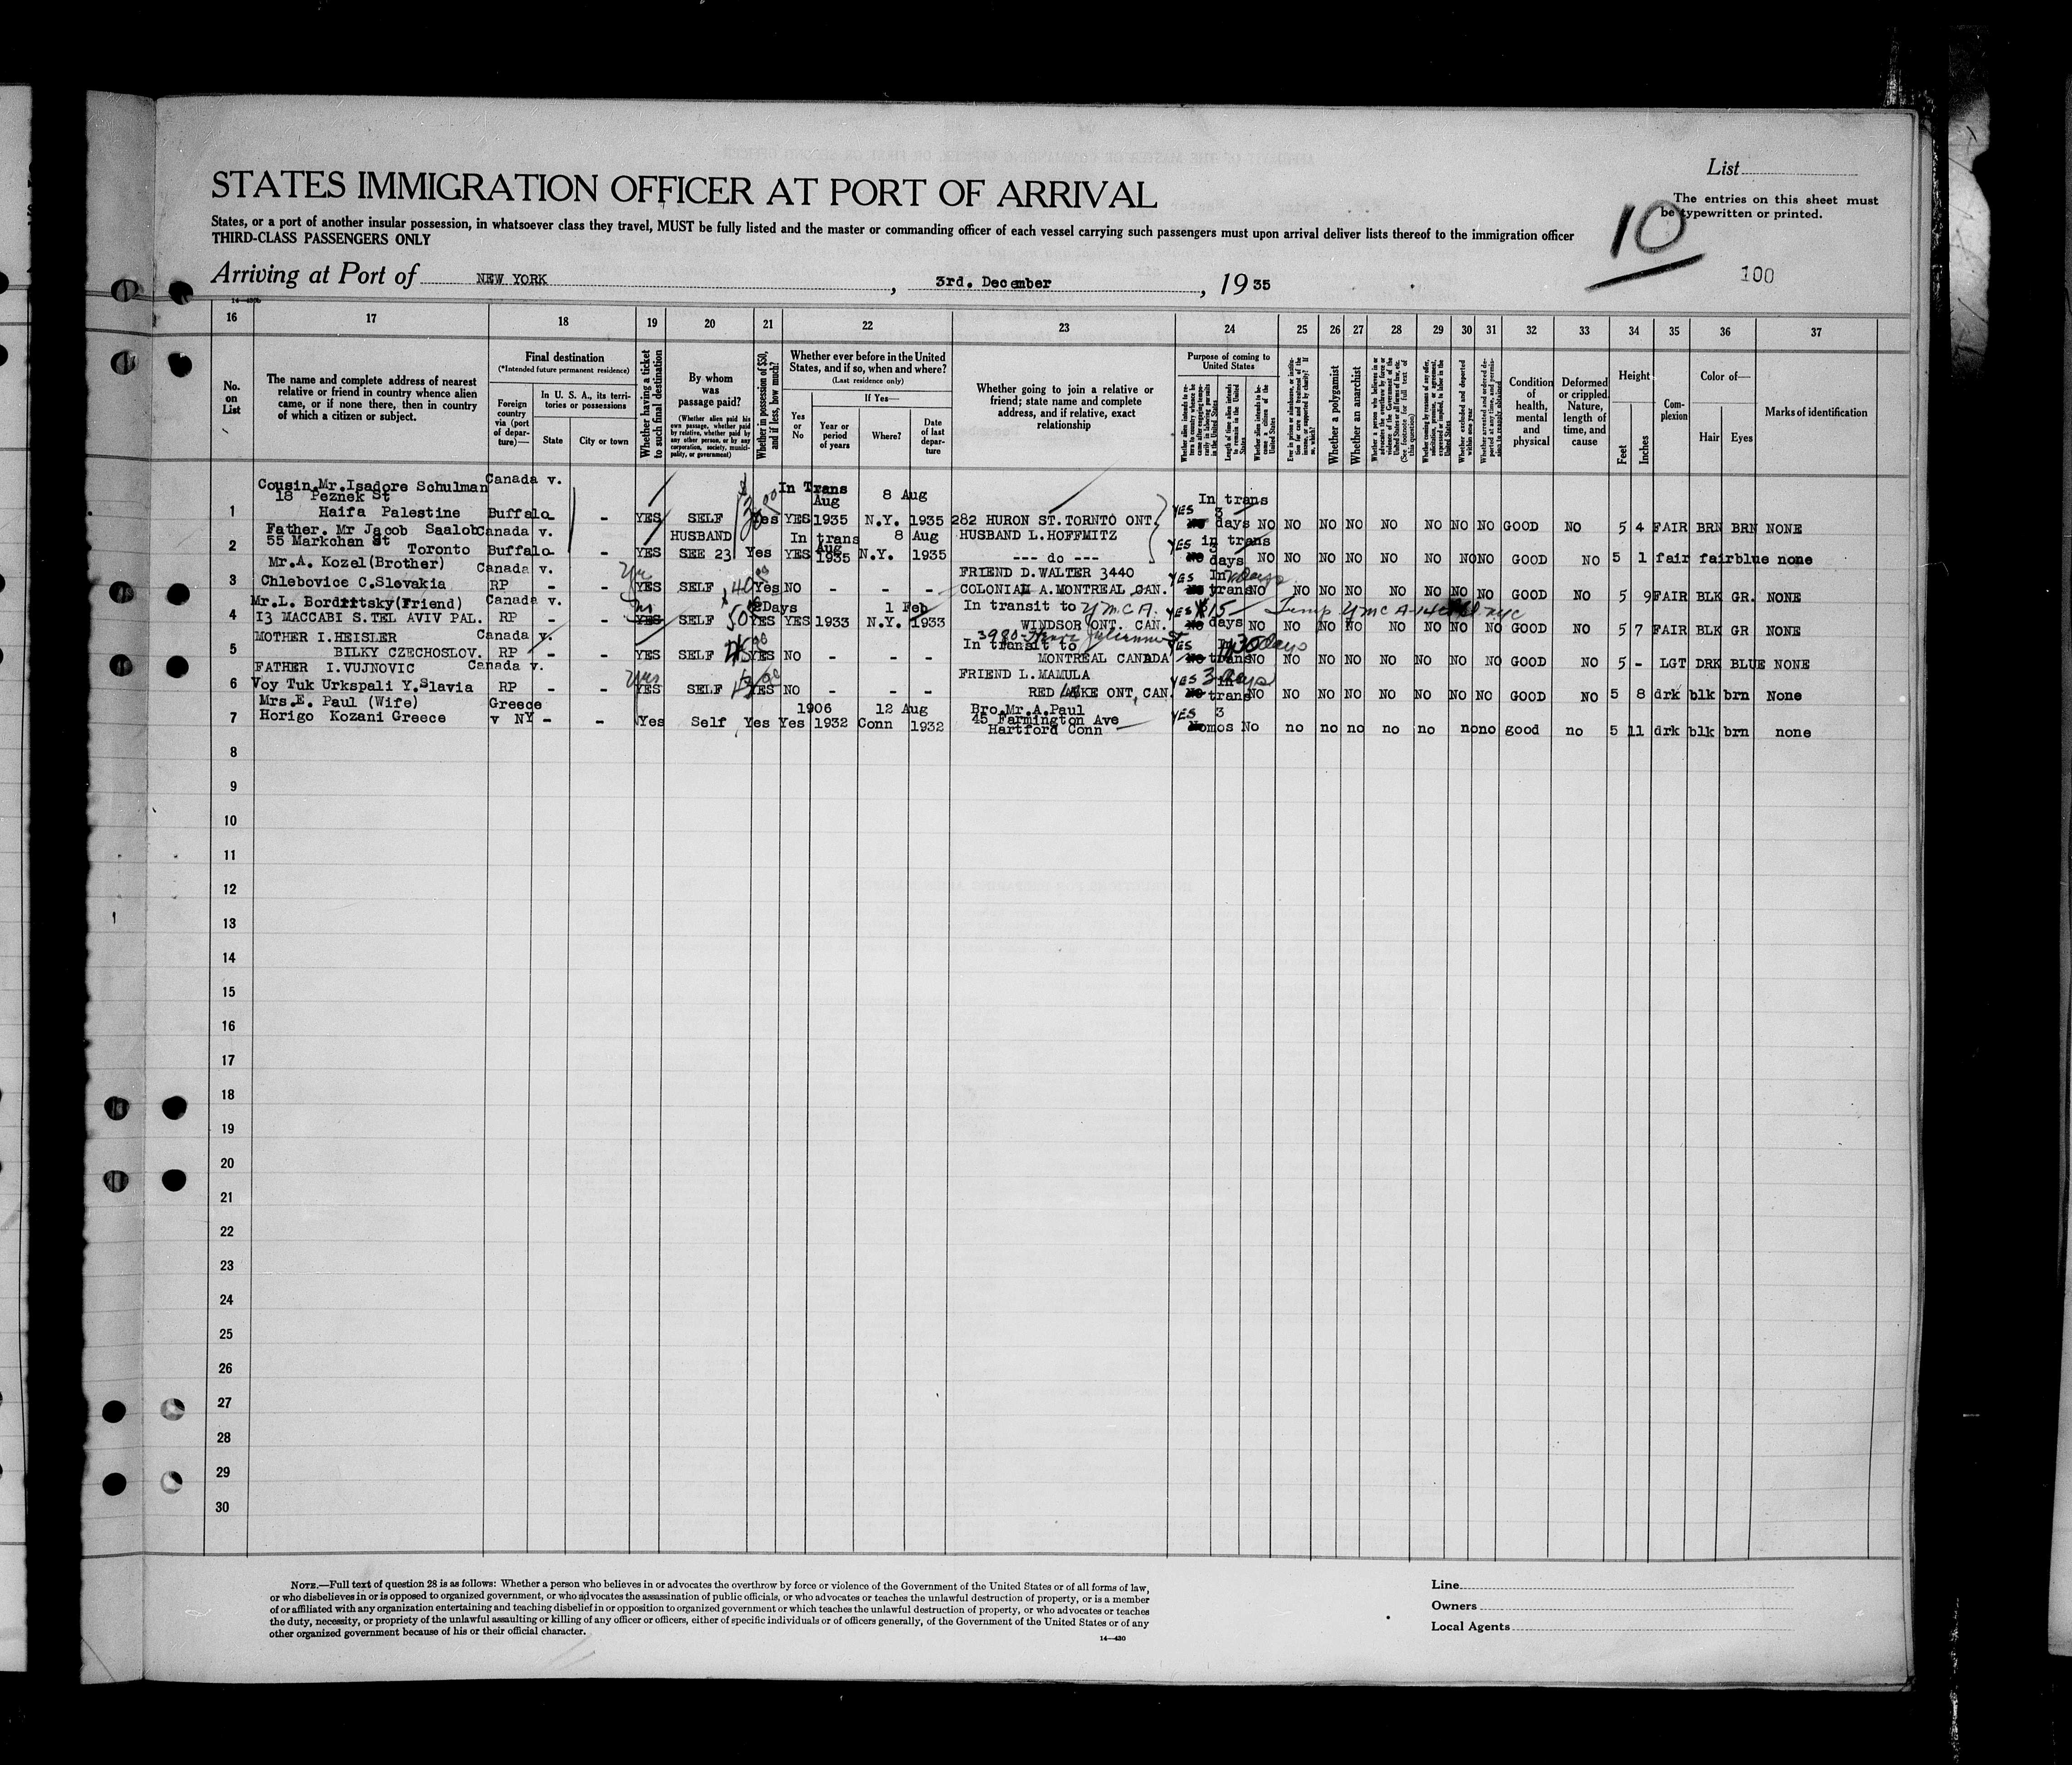 List
STATES IMMIGRATION OFFICER AT PORT OF ARRIVAL
The entries on this sheet must
be typewritten or printed.
10
States, or a port of another insular possession, in whatsoever class they travel, MUST be fully listed and the master or commanding officer of each vessel carrying such passengers must upon arrival deliver lists thereof to the immigration officer
THIRD-CLASS PASSENGERS ONLY
Arriving at Port of NEW YORK, 3rd. December, 1935
100
16 17 18 19 20 21 22 23 24 25 26 27 28 29 30 31 32 33 34 35 36 37
No. on List
The name and complete address of nearest relative or friend in country whence alien came, or if none there, then in country of which a citizen or subject.
Final destination
(*Intended future permanent residence)
Foreign country via (port of departure)—
In U. S. A., its territories or possessions
State
City or town
Whether having a ticket to such final destination
By whom was passage paid?
(Whether alien paid his own passage, whether paid by relative, whether paid by any other person, or by any corporation, society, municipality, or government)
Whether in possession of $50, and if less, how much?
Whether ever before in the United States, and if so, when and where?
(Last residence only)
Yes or No
If Yes—
Year or period of years
Where?
Date of last departure
Whether going to join a relative or friend; state name and complete address, and if relative, exact relationship
Purpose of coming to United States
Length of time alien intends to remain in the United States
Whether alien intends to become a citizen of the United States
Whether a polygamist
Whether an anarchist
Condition of health, mental and physical
Deformed or crippled. Nature, length of time, and cause
Height
Feet
Inches
Complexion
Color of—
Hair
Eyes
Marks of identification
Cousin Mr. Isadore Schulman Canada v. In Trans 8 Aug In trans
18 Peznek St Aug
1 Haifa Palestine Buffalo - - YES SELF Yes YES 1935 N.Y. 1935 282 HURON ST. TORNTO ONT. YES 3 days NO NO NO NO NO NO NO NO GOOD NO 5 4 FAIR BRN BRN NONE
Father. Mr Jacob Saalob Canada v. HUSBAND In trans 8 Aug HUSBAND L. HOFFMITZ in trans
55 Markchan St Aug
2 Toronto Buffalo - - YES SEE 23 Yes YES 1935 N.Y. 1935 --- do --- YES 3 days NO NO NO NO NO NO NO NO GOOD NO 5 1 fair fair blue none
Mr. A. Kozel (Brother) Canada v. FRIEND D. WALTER 3440
3 Chlebovice C. Slovakia RP - - YES SELF 40 Yes NO - - - COLONIAL A. MONTREAL CAN. YES In trans days NO NO NO NO NO NO NO NO GOOD NO 5 9 FAIR BLK GR. NONE
Mr. L. Borditsky (Friend) Canada v. Days 1 Feb In transit to YMCA.
4 13 MACCABI S. TEL AVIV PAL. RP - - YES SELF 50 YES YES 1933 N.Y. 1933 WINDSOR ONT. CAN. YES 15 days NO NO NO NO NO NO NO NO GOOD NO 5 7 FAIR BLK GR NONE
MOTHER I. HEISLER Canada v. 3980 In transit to
5 BILKY CZECHOSLOV. RP - - YES SELF YES NO - - - MONTREAL CANADA YES In trans 30 days NO NO NO NO NO NO NO NO GOOD NO 5 - LGT DRK BLUE NONE
FATHER I. VUJNOVIC Canada v. FRIEND L. MAMULA
6 Voy Tuk Urkspali Y. Slavia RP - - YES SELF YES NO - - - RED LAKE ONT, CAN. YES 3 days trans NO NO NO NO NO NO NO NO GOOD NO 5 8 drk blk brn None
Mrs. E. Paul (Wife) Greece 1906 12 Aug Bro. Mr. A. Paul
7 Horigo Kozani Greece v NY - - Yes Self Yes Yes 1932 Conn 1932 45 Farmington Ave YES 3 mos No no no no no no no no good no 5 11 drk blk brn none
Hartford Conn
8
9
10
11
12
13
14
15
16
17
18
19
20
21
22
23
24
25
26
27
28
29
30
NOTE.—Full text of question 28 is as follows: Whether a person who believes in or advocates the overthrow by force or violence of the Government of the United States or of all forms of law,
or who disbelieves in or is opposed to organized government, or who advocates the assassination of public officials, or who advocates or teaches the unlawful destruction of property, or is a member
of or affiliated with any organization entertaining and teaching disbelief in or opposition to organized government or which teaches the unlawful destruction of property, or who advocates or teaches
the duty, necessity, or propriety of the unlawful assaulting or killing of any officer or officers, either of specific individuals or of officers generally, of the Government of the United States or of any
other organized government because of his or their official character.
14—430
Line
Owners
Local Agents